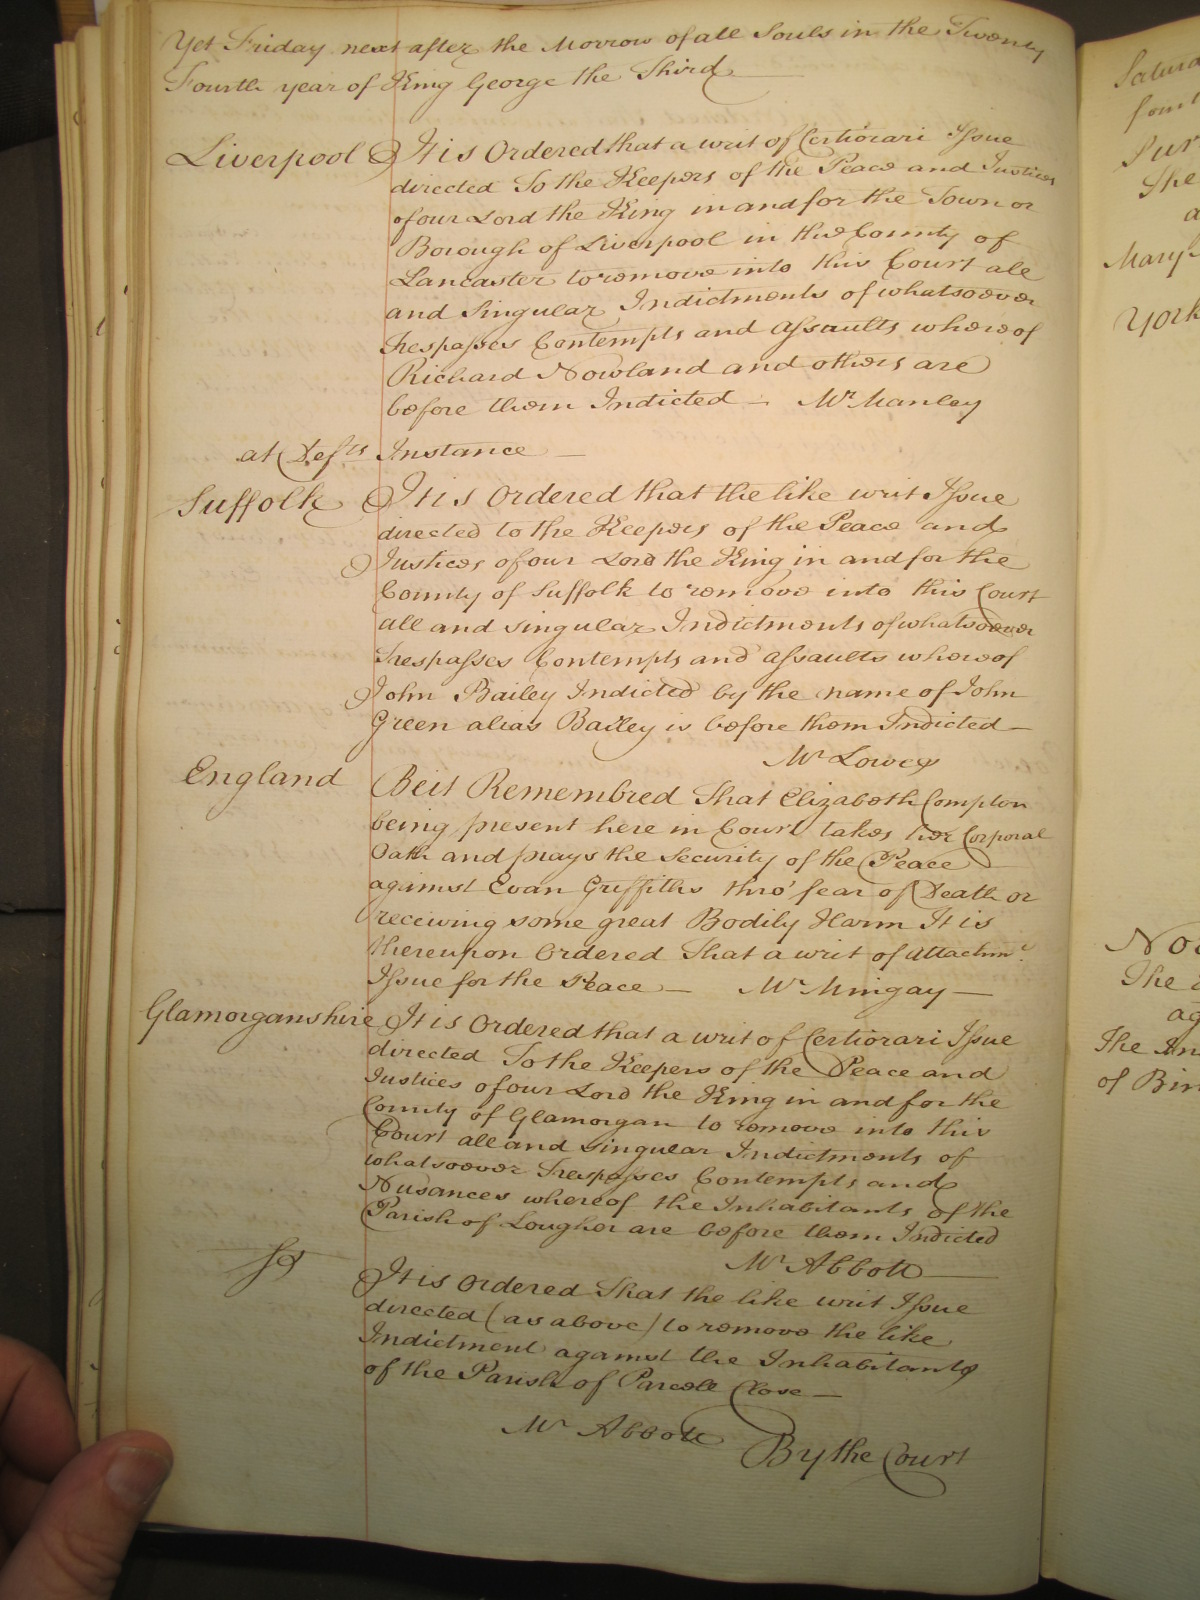 Yet Friday next after the Morrow of all Souls in the Twenty
Fourth year of King George the Third
Liverpool It is Ordered that a writ of Certiorari Issue
directed To the Keepers of the Peace and Justices
of our Lord the King in and for the Town or
Borough of Liverpool in the County of
Lancaster to remove into this Court all
and Singular Indictments of whatsoever
Trespasses Contempts and Assaults whereof
Richard Nowland and others are
before them Indicted — Mr Manley
at Defts Instance —
Suffolk It is Ordered that the like writ Issue
directed to the Keepers of the Peace and
Justices of our Lord the King in and for the
County of Suffolk to remove into this Court
all and singular Indictments of whatsoever
Trespasses Contempts and Assaults whereof
John Bailey Indicted by the name of John
Green alias Bailey is before them Indicted —
Mr Lowes
England Be it Remembred That Elizabeth Compton
being present here in Court takes her Corporal
Oath and prays the Security of the Peace
against Evan Griffiths thro' fear of Death or
receiving some great Bodily Harm It is
thereupon Ordered That a writ of Attachmt
Issue for the Peace — Mr Mingay —
Glamorganshire It is Ordered that a writ of Certiorari Issue
directed To the Keepers of the Peace and
Justices of our Lord the King in and for the
County of Glamorgan to remove into this
Court all and singular Indictments of
whatsoever Trespasses Contempts and
Nusances whereof the Inhabitants of the
Parish of Lougher are before them Indicted
Mr Abbott —
It is Ordered That the like writ Issue
directed (as above) to remove the like
Indictment against the Inhabitants
of the Parish of Parcell Close —
Mr Abbott By the Court
The
Mary
York
The
ag
of Bir